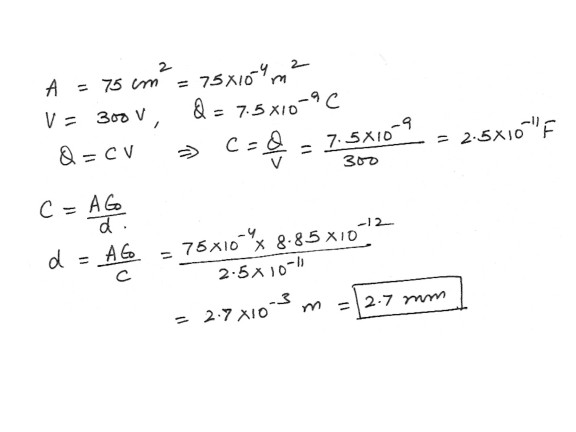 A = 75 cm² = 75×10⁻⁴ m²
V = 300 V, Q = 7.5×10⁻⁹ C
Q = CV ⇒ C = Q/V = 7.5×10⁻⁹/300 = 2.5×10⁻¹¹ F
C = Aϵ₀/d.
d = Aϵ₀/C = 75×10⁻⁴ × 8.85×10⁻¹²/2.5×10⁻¹¹
= 2.7×10⁻³ m = 2.7 mm